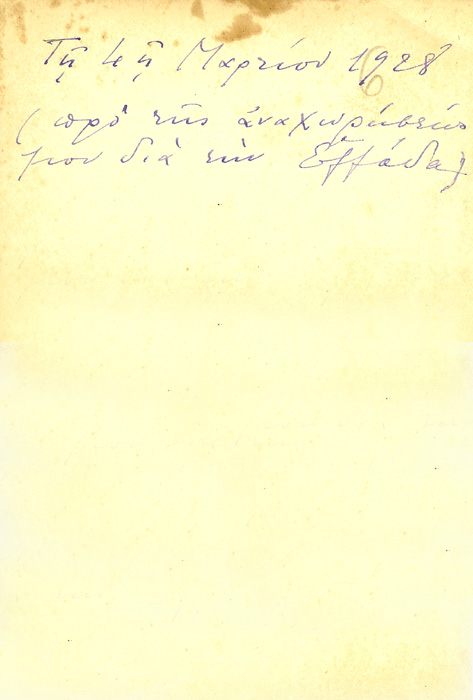 Τῇ 4ῃ Μαρτίου 1928
(πρὸ τῆς ἀναχωρήσεώς
μου διὰ τὴν Ἑλλάδα)